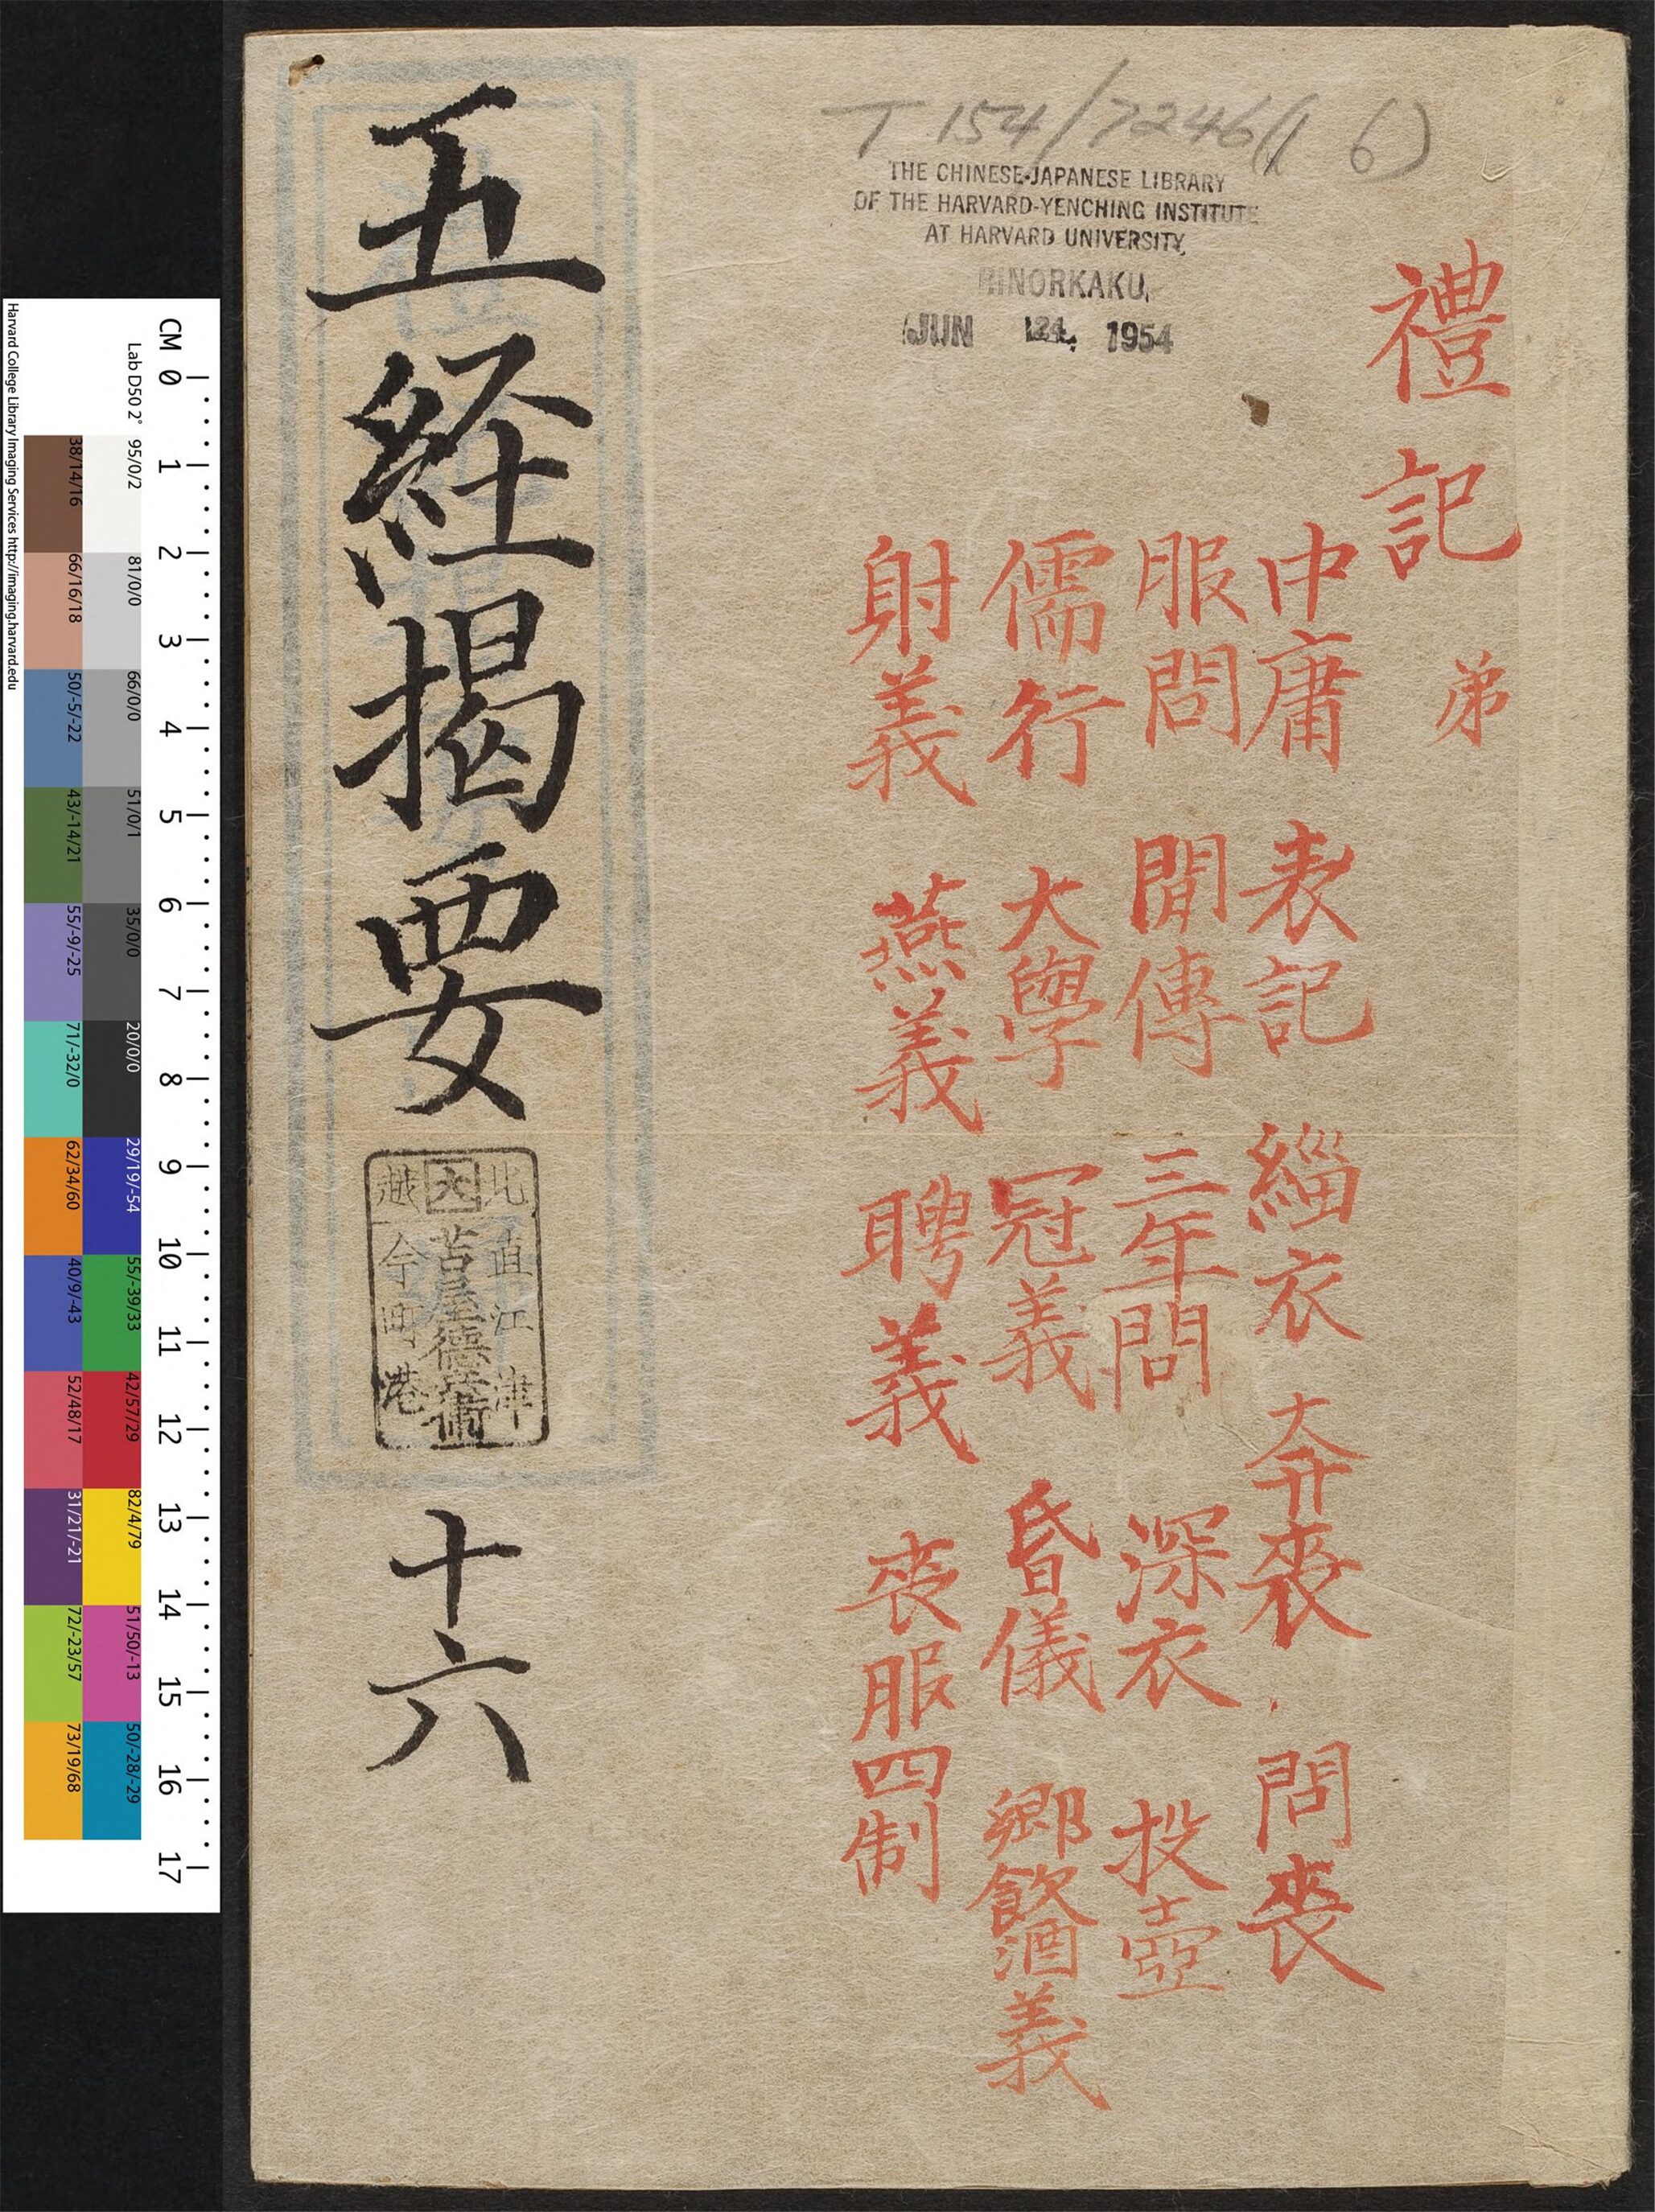 T 154/7246(16)
THE CHINESE-JAPANESE LIBRARY
OF THE HARVARD-YENCHING INSTITUTE
AT HARVARD UNIVERSITY
JUN 24 1954
禮記 弟
中庸 表記 緇衣 奔喪 問喪
服問 間傳 三年問 深衣 投壺
儒行 大學 冠義 昏儀 鄉飲酒義
射義 燕義 聘義 喪服四制
五経揭要 十六
北 直江津
大 苫屋德兵衛
越 今町港
CM 0 1 2 3 4 5 6 7 8 9 10 11 12 13 14 15 16 17
Lab D50 2° 95/0/2 81/0/0 66/0/0 51/0/1 35/0/0 20/0/0 29/19/-54 55/-39/33 42/57/29 82/4/79 51/50/-13 50/-28/-29
38/14/16 66/16/18 50/-5/-22 43/-14/21 55/-9/-25 71/-32/0 62/34/60 40/9/-43 52/48/17 31/21/-21 72/-23/57 73/19/68
Harvard College Library Imaging Services http://imaging.harvard.edu